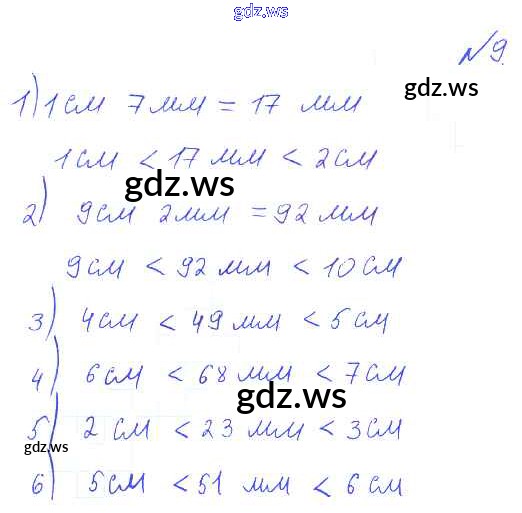 gdz.ws
№9.
gdz.ws
1) 1 см 7 мм = 17 мм
1 см < 17 мм < 2 см
gdz.ws
2) 9 см 2 мм = 92 мм
9 см < 92 мм < 10 см
3) 4 см < 49 мм < 5 см
4) 6 см < 68 мм < 7 см
gdz.ws
5) 2 см < 23 мм < 3 см
gdz.ws
6) 5 см < 51 мм < 6 см